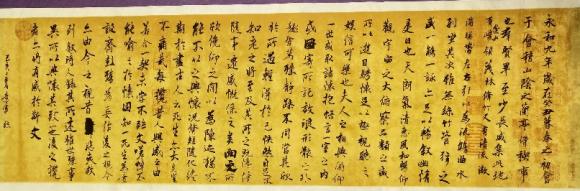 永和九年歲在癸丑暮春之初會
于會稽山陰之蘭亭脩禊事
也羣賢畢至少長咸集此地
有崇山峻領茂林脩竹又有清流激
湍暎帶左右引以為流觴曲水
列坐其次雖無絲竹管弦之
盛一觴一詠亦足以暢敘幽情
是日也天朗氣清惠風和暢仰
觀宇宙之大俯察品類之盛
所以遊目騁懷足以極視聽之
娛信可樂也夫人之相與俯仰
一世或取諸懷抱悟言一室之內
或因寄所託放浪形骸之外雖
趣舍萬殊靜躁不同當其欣
於所遇暫得於己怏然自足不
知老之將至及其所之既惓情
隨事遷感慨係之矣向之所
欣俛仰之間以為陳迹猶不
能不以之興懷況脩短隨化終
期於盡古人云死生亦大矣豈
不痛哉每攬昔人興感之由
若合一契未嘗不臨文嗟悼不
能喻之於懷固知一死生為虛
誕齊彭殤為妄作後之視今
亦由今之視昔悲夫故
列敘時人錄其所述雖世殊事
異所以興懷其致一也後之攬
者亦將有感於斯文